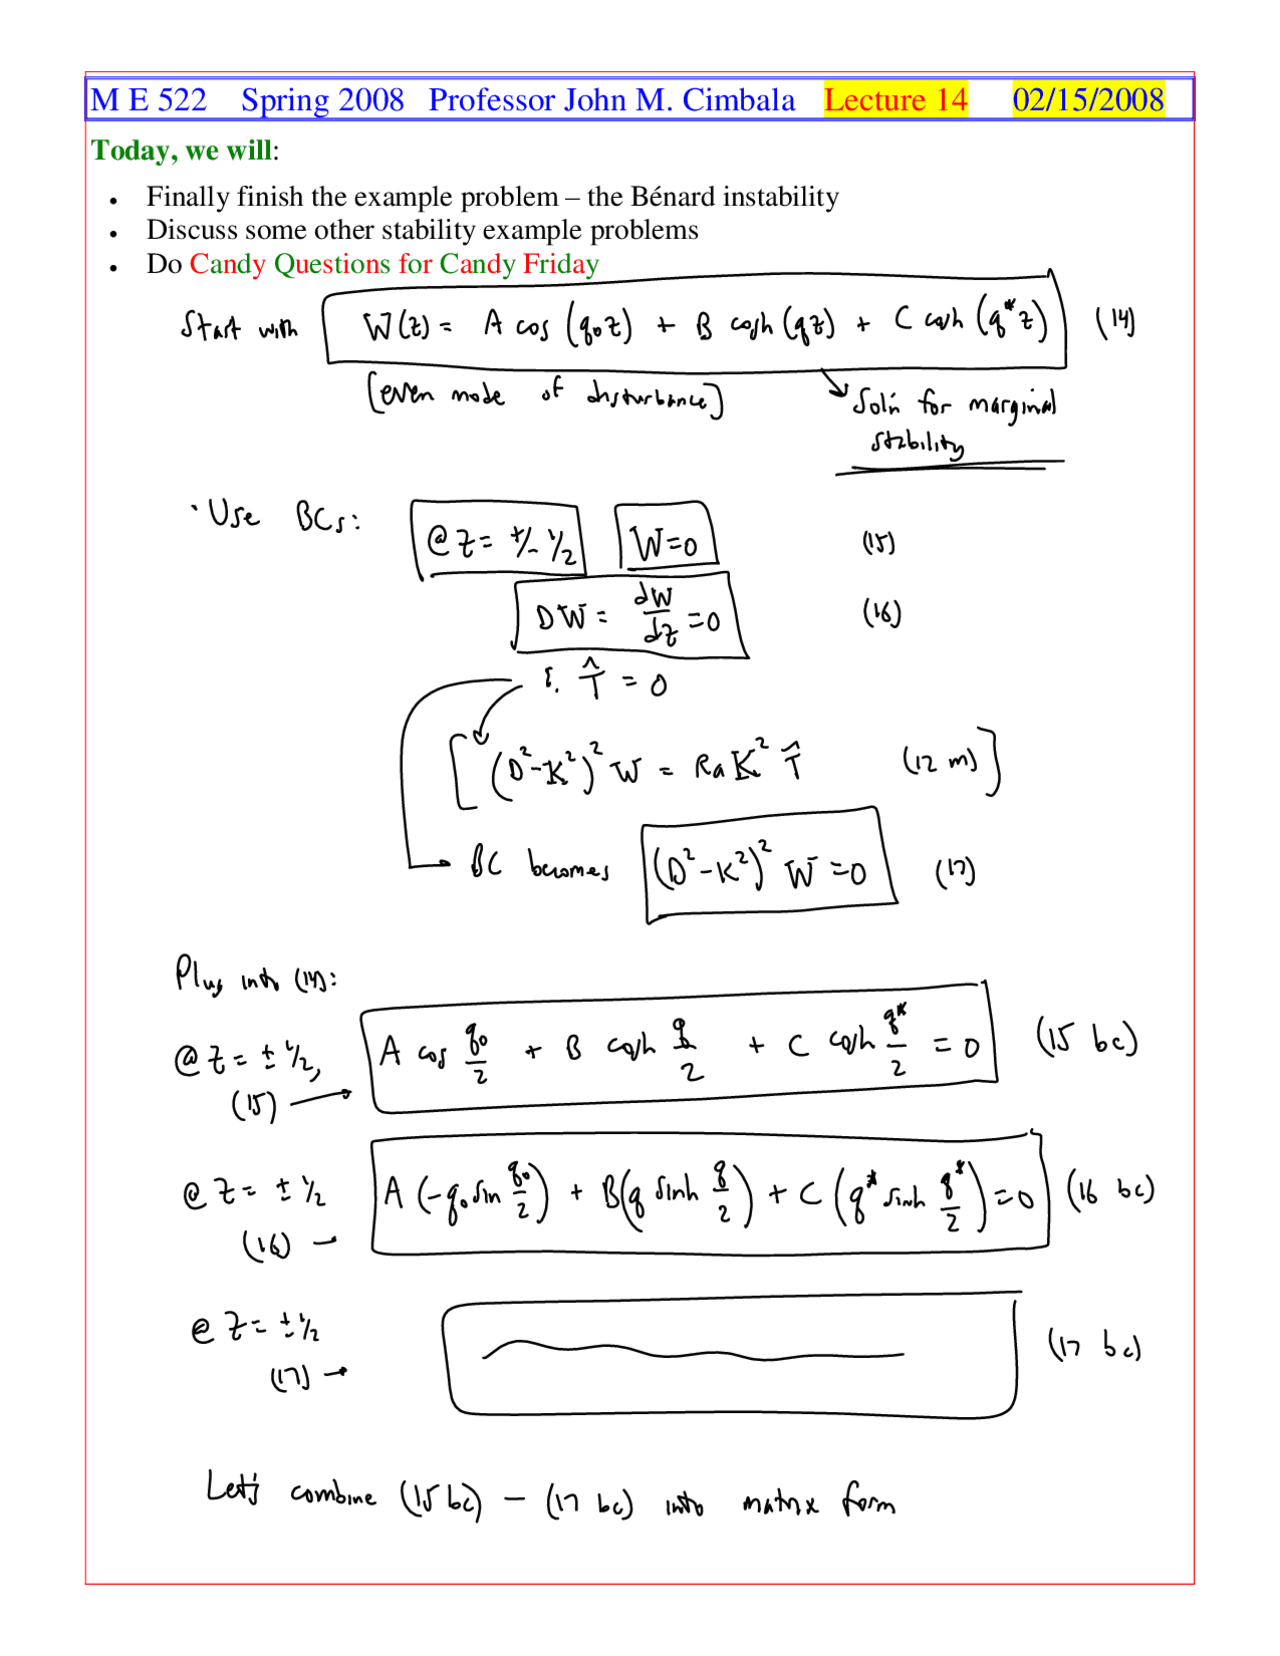 M E 522 Spring 2008 Professor John M. Cimbala Lecture 14 02/15/2008
Today, we will:
• Finally finish the example problem – the Bénard instability
• Discuss some other stability example problems
• Do Candy Questions for Candy Friday
Start with W(z) = A cos (q₀z) + B cosh (qz) + C cosh (q*z) (14)
(even mode of disturbance)
Sol'n for marginal
stability
· Use BCs: @ z = +/- 1/2 W=0 (15)
DW = dW/dz = 0 (16)
& T̂ = 0
[(D²-K²)² W = Ra K² T̂ (12 m)]
BC becomes (D²-K²)² W = 0 (17)
Plug into (14):
@ z = ± 1/2, A cos q₀/2 + B cosh q/2 + C cosh q*/2 = 0 (15 bc)
(15) →
@ z = ± 1/2 A (-q₀ sin q₀/2) + B(q sinh q/2) + C (q* sinh q*/2) = 0 (16 bc)
(16) →
@ z = ± 1/2 (17 bc)
(17) →
Let's combine (15 bc) – (17 bc) into matrix form